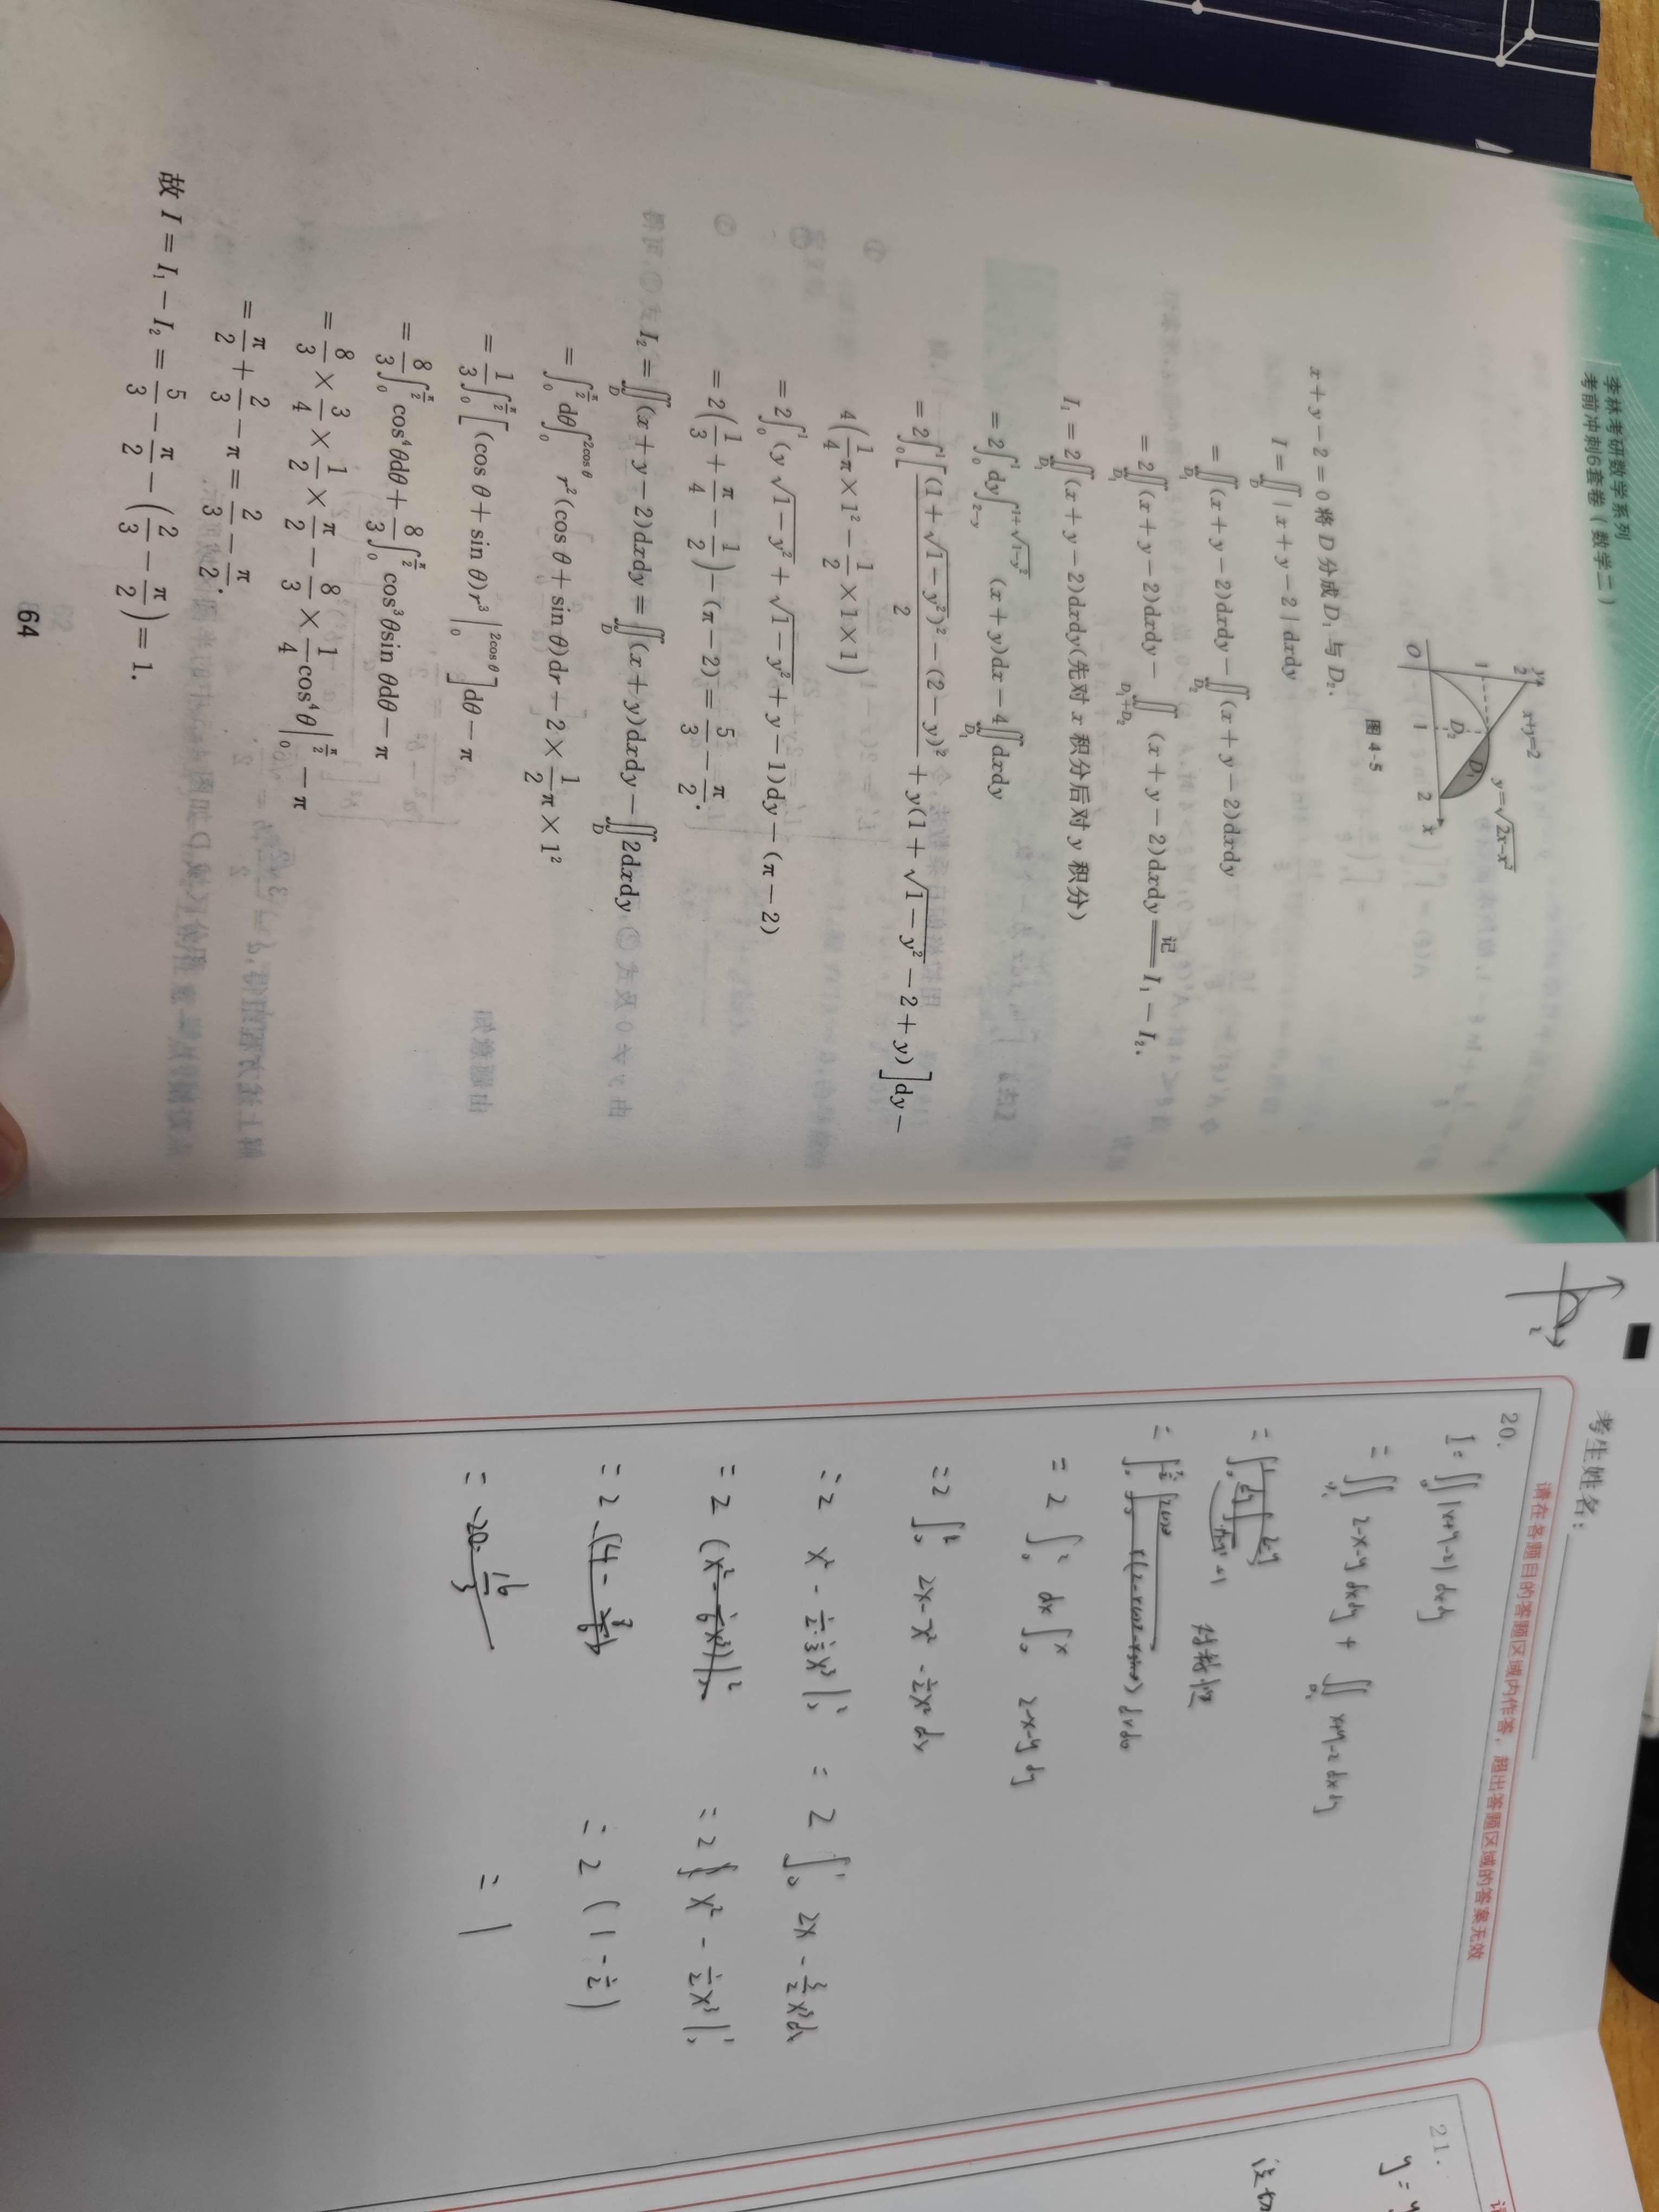 李林考研数学系列
考前冲刺6套卷(数学二)
y
2
x+y=2
y=√(2x-x²)
1
D₂
D₁
O
1
2
x
图 4-5
x+y-2=0 将 D 分成 D₁ 与 D₂.
I=∬_D |x+y-2|dxdy
=∬_{D₁}(x+y-2)dxdy-∬_{D₂}(x+y-2)dxdy
=2∬_{D₁}(x+y-2)dxdy-∬_{D₁+D₂}(x+y-2)dxdy ≝(记) I₁-I₂.
I₁=2∬_{D₁}(x+y-2)dxdy(先对 x 积分后对 y 积分)
=2∫₀¹dy∫_{2-y}^{1+√(1-y²)}(x+y)dx-4∬_{D₁}dxdy
=2∫₀¹[((1+√(1-y²))²-(2-y)²)/2+y(1+√(1-y²)-2+y)]dy-
4(1/4 π×1²-1/2×1×1)
=2∫₀¹(y√(1-y²)+√(1-y²)+y-1)dy-(π-2)
=2(1/3+π/4-1/2)-(π-2)=5/3-π/2.
I₂=∬_D(x+y-2)dxdy=∬_D(x+y)dxdy-∬_D 2dxdy
=∫₀^{π/2}dθ∫₀^{2cos θ}r²(cos θ+sin θ)dr-2×1/2 π×1²
=1/3∫₀^{π/2}[(cos θ+sin θ)r³|₀^{2cos θ}]dθ-π
=8/3∫₀^{π/2}cos⁴θdθ+8/3∫₀^{π/2}cos³θsin θdθ-π
=8/3×3/4×1/2×π/2-8/3×1/4cos⁴θ|₀^{π/2}-π
=π/2+2/3-π=2/3-π/2.
故 I=I₁-I₂=5/3-π/2-(2/3-π/2)=1.
64
考生姓名:
请在各题目的答题区域内作答,超出答题区域的答案无效
20.
I=∬_D|x+y-2|dxdy
=∬ 2-x-y dxdy+∬ x+y-2 dxdy
对称性
=2∫₀²dx∫₀ˣ 2-x-y dy
=2∫₀² 2x-x²-1/2x²dx
=2 x²-1/2·1/3x³|₀² =2∫₀¹ 2x-3/2x²dx
=2(x²-1/6x³)|² =2{x²-1/2x³|₀¹
=2·(4-8/6) =2(1-1/2)
= =1
21.